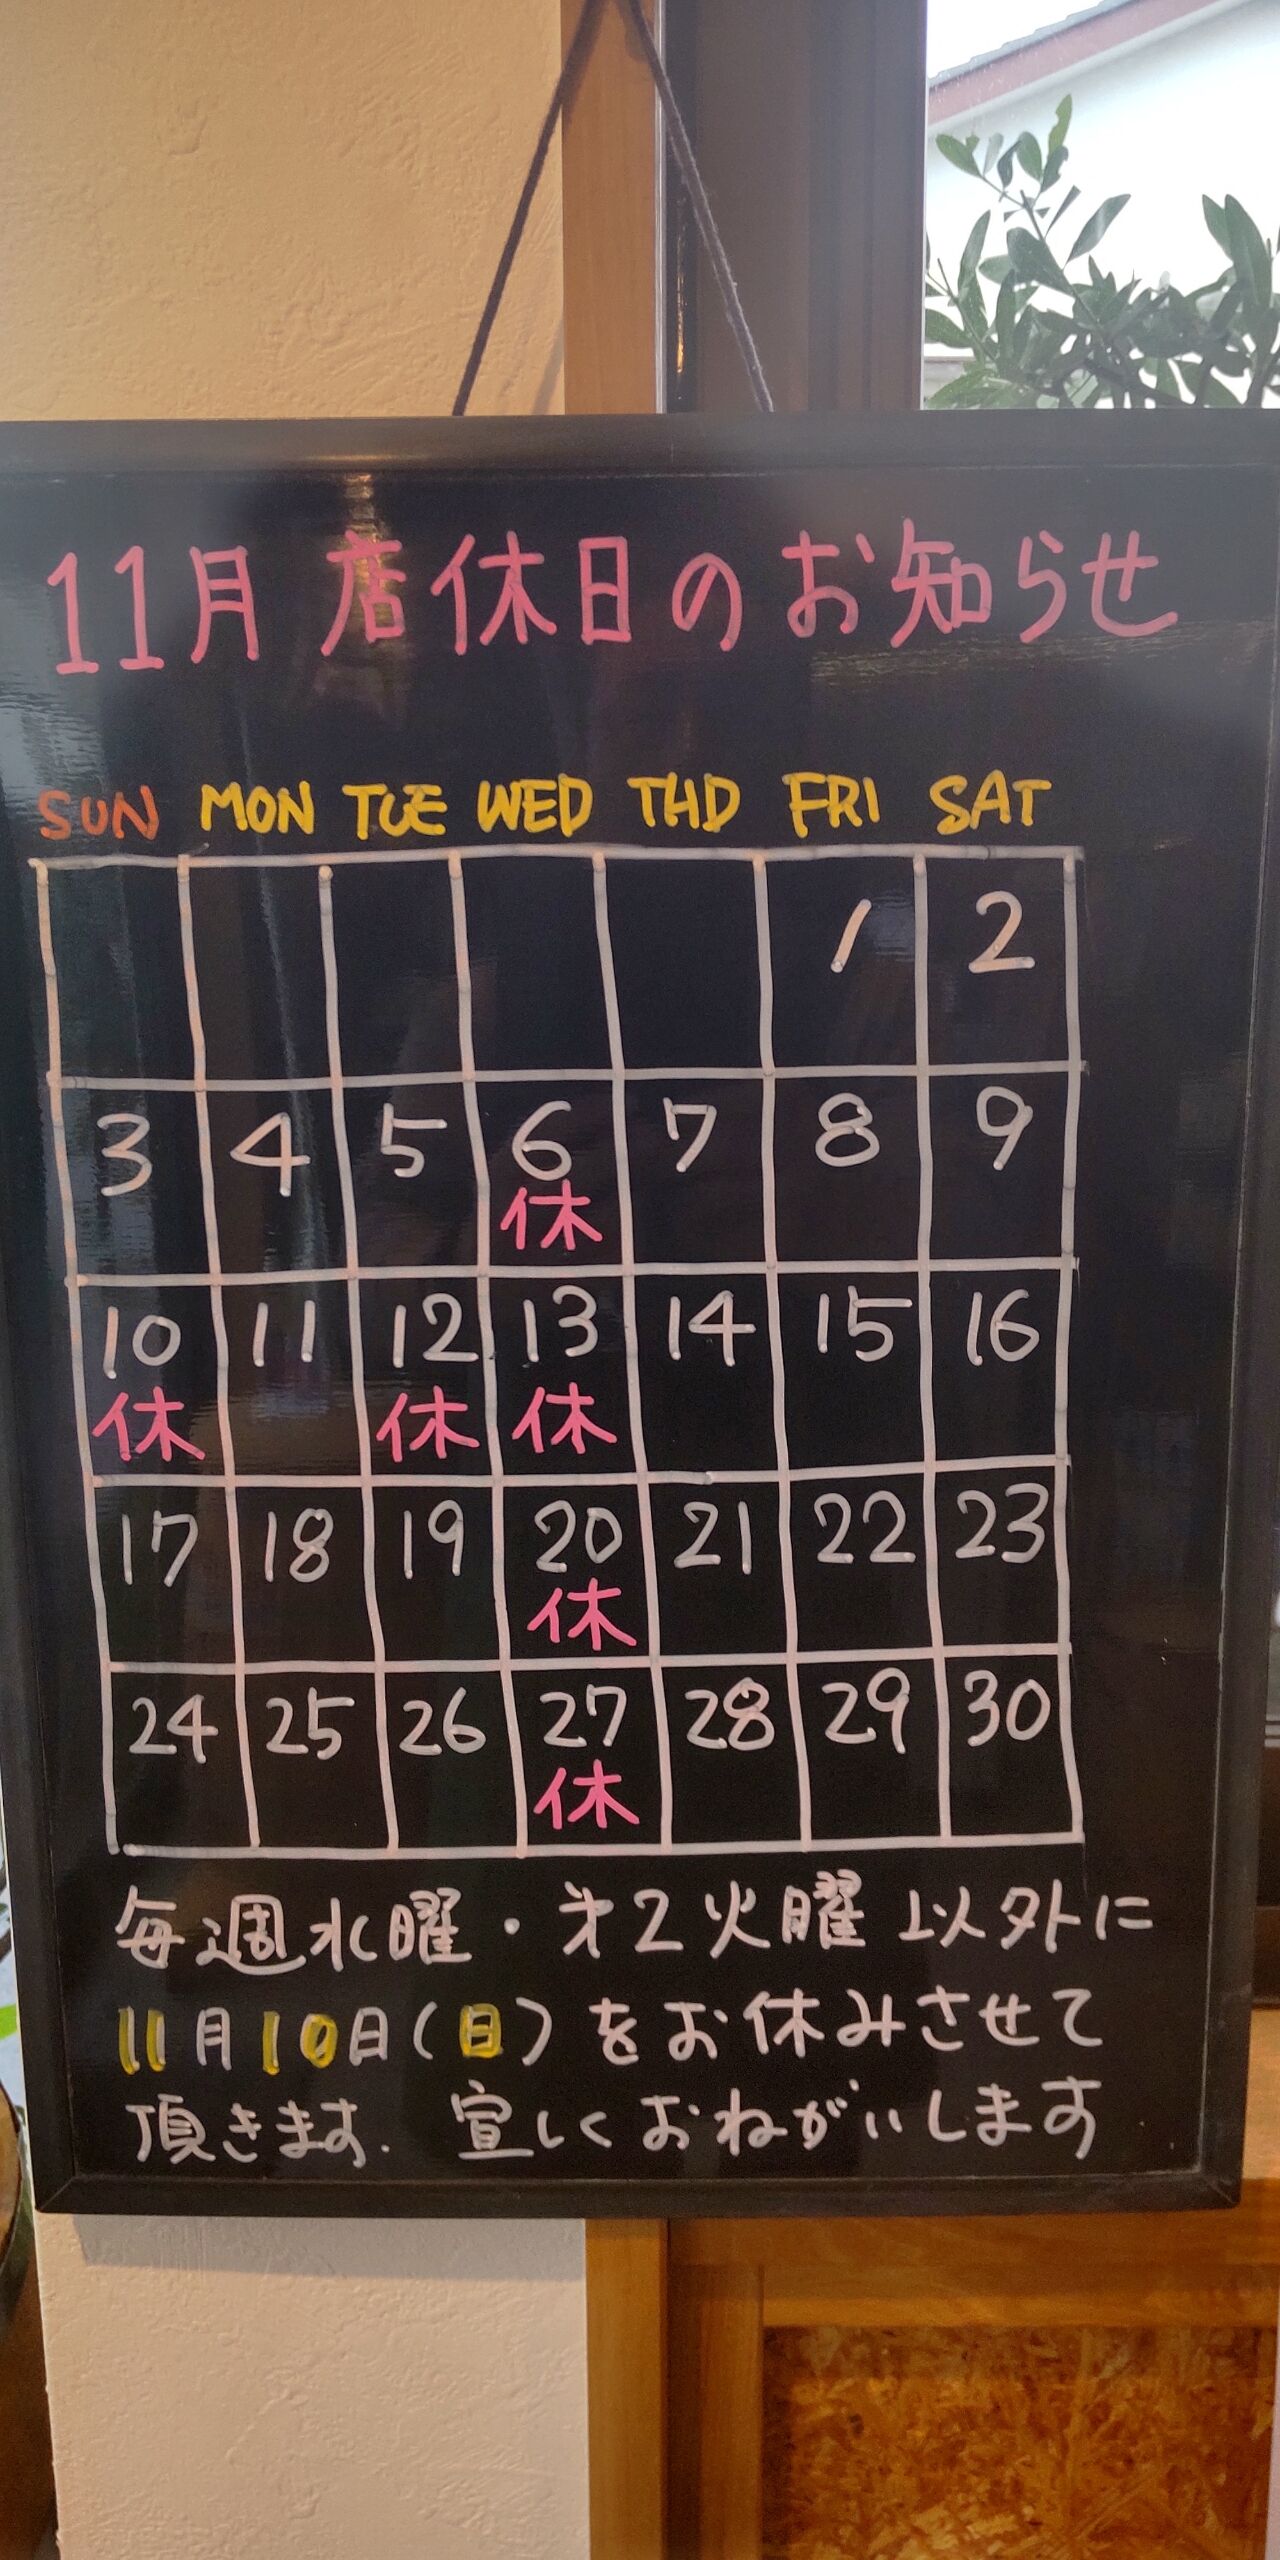 11月 店休日のお知らせ
SUN MON TUE WED THD FRI SAT
1 2
3 4 5 6 7 8 9
休
10 11 12 13 14 15 16
休 休 休
17 18 19 20 21 22 23
休
24 25 26 27 28 29 30
休
毎週水曜・才2火曜 以外に
11月10日(日)をお休みさせて
頂きます. 宜しくおねがいします